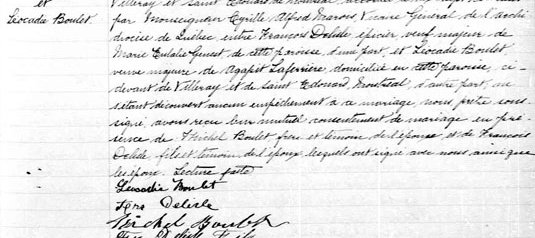 et
Léocadie Boulet
Villeray et Saint Edouard de Montréal accordée
par Monseigneur Cyrille Alfred Marois Vicaire Général de l'archi
diocèse de Québec, entre François Delisle épicier veuf majeur de
Marie Eulalie Genest de cette paroisse d'une part, et Léocadie Boulet
veuve majeure de Agapit Laferrière domiciliée en cette paroisse, ci-
devant de Villeray et de Saint Edouard, Montréal d'autre part, ne
s'étant découvert aucun empêchement à ce mariage, nous prêtre sous-
signé, avons reçu leur mutuel consentement de mariage en pré
sence de Michel Boulet frère et témoin de l'épouse et de François
Delisle, fils et témoin de l'époux lesquels ont signé avec nous ainsi que
les époux. Lecture faite
Leocadie Boulet
Fcrs Delisle
Michel Boulet